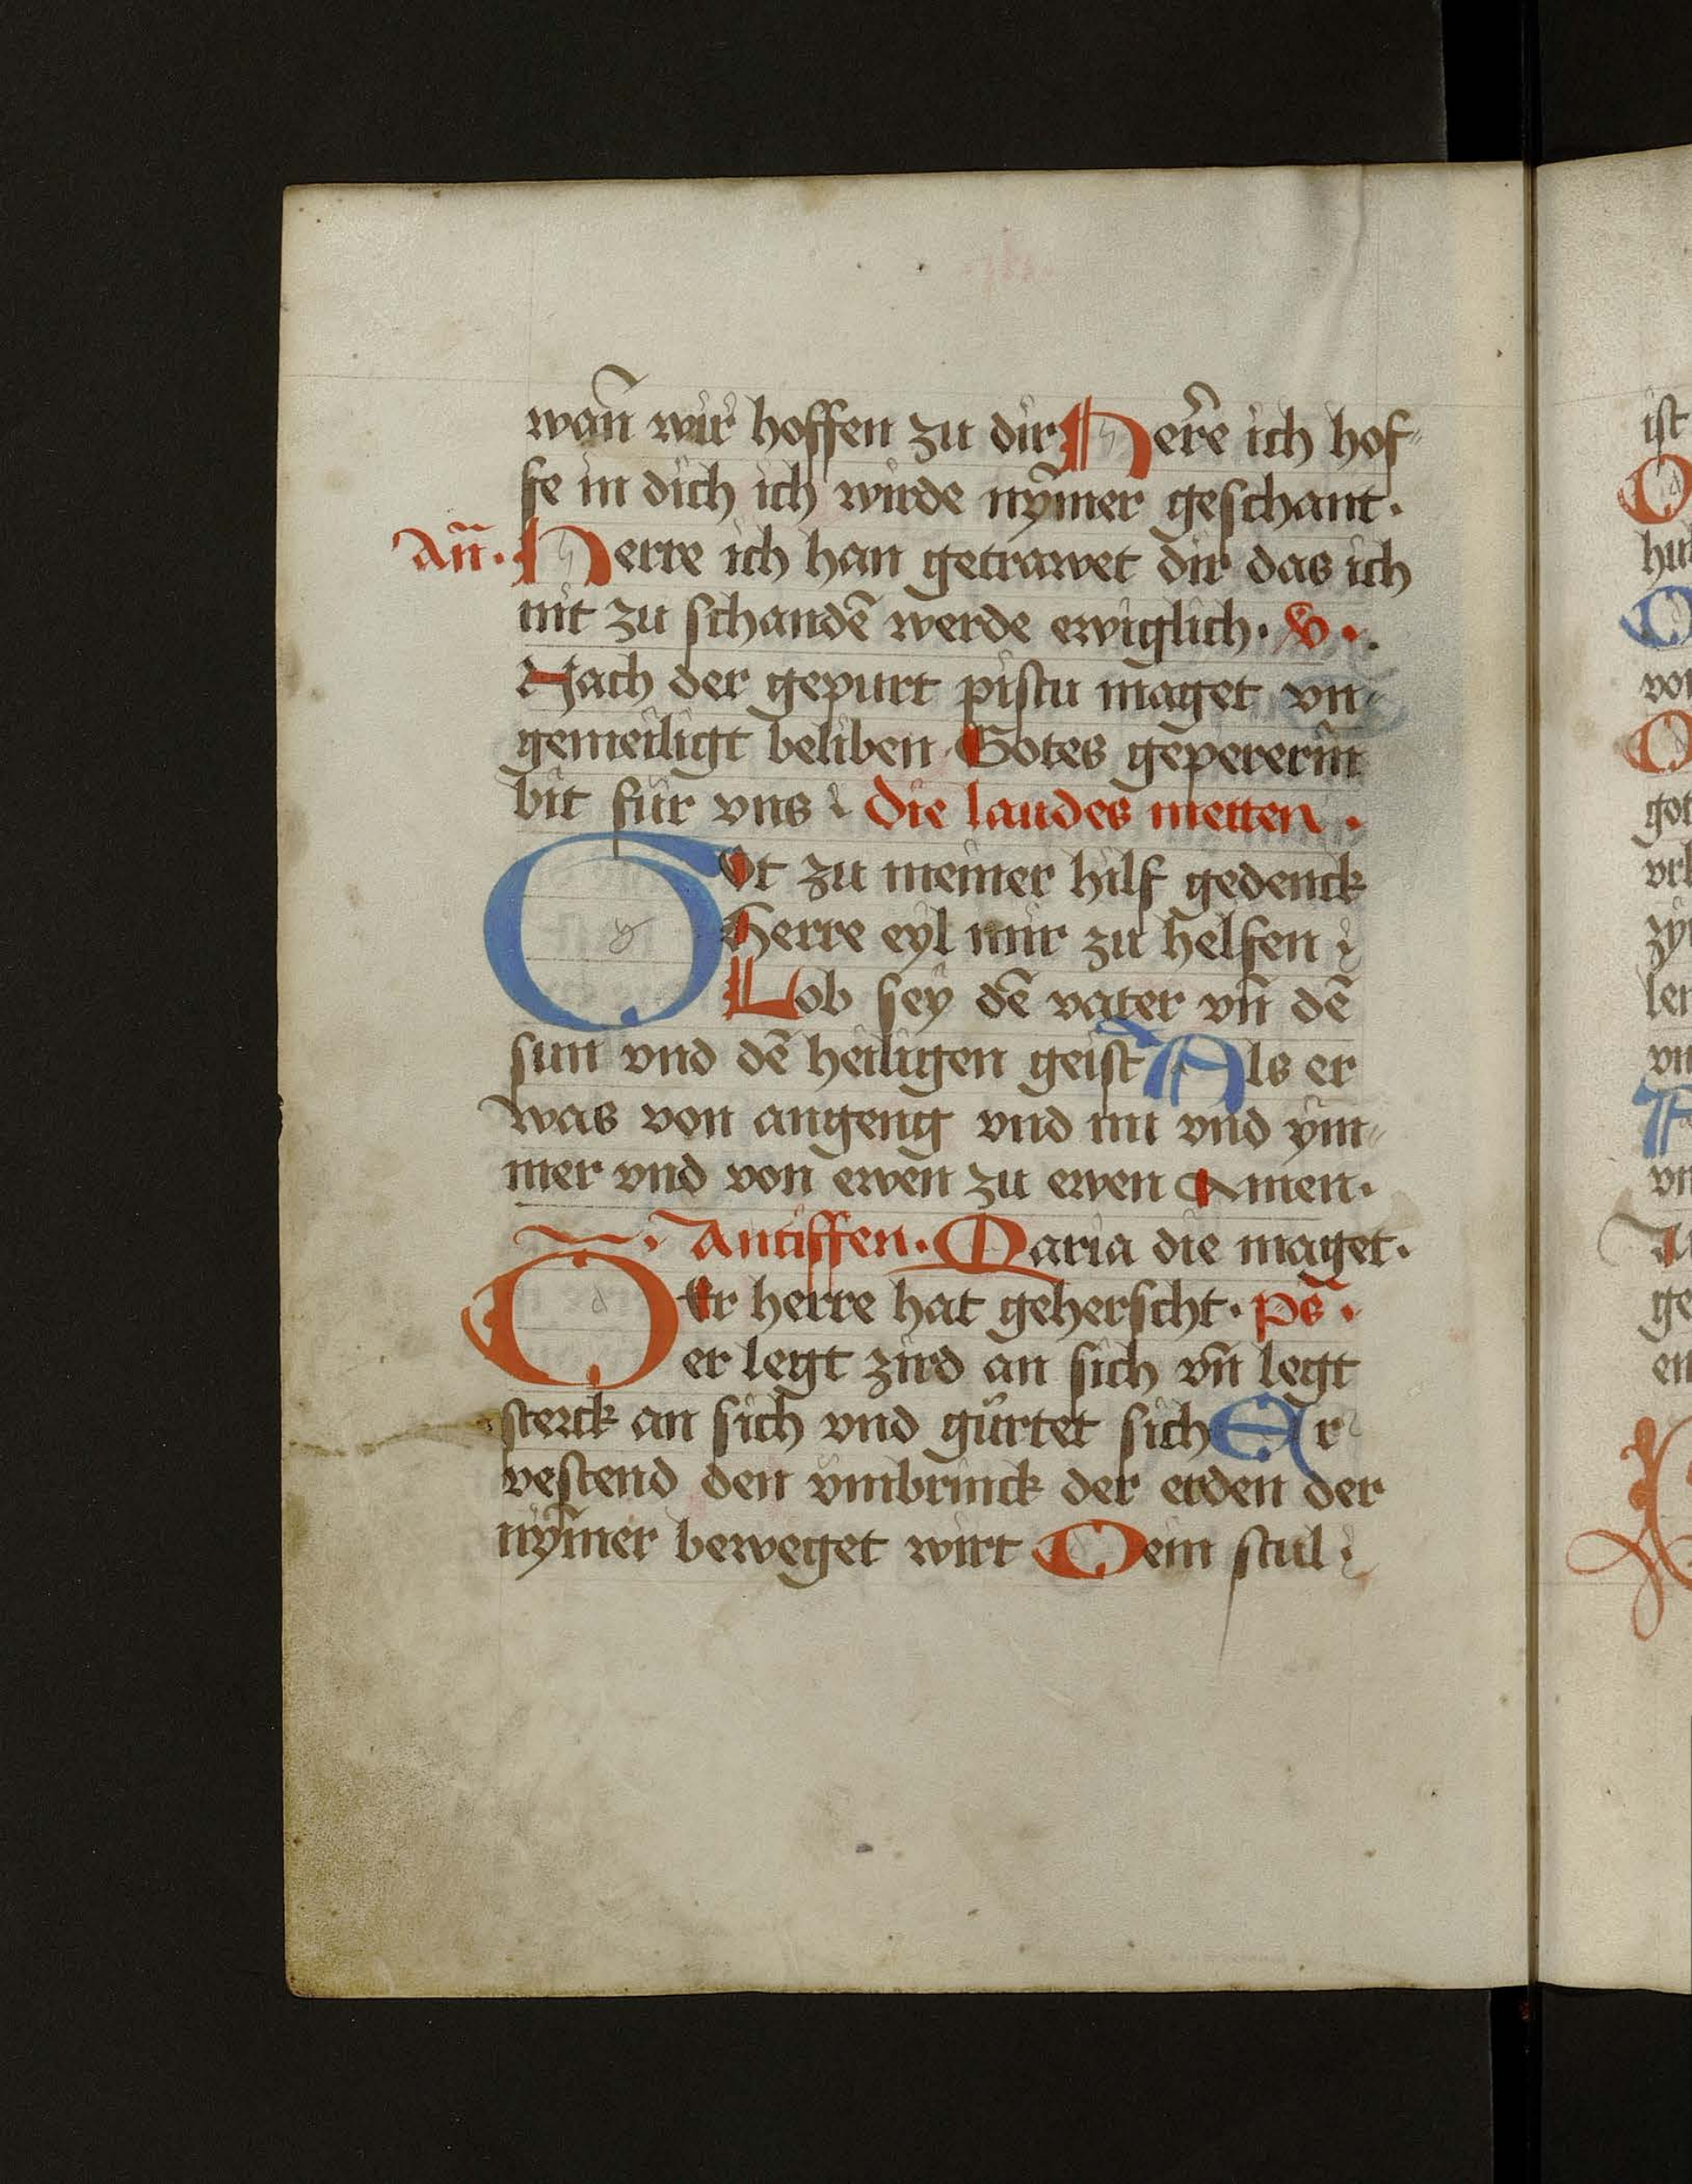 wañ wir hoffen zu dir Herˀe ich hof⸗
fe in dich ich wirde nym̄er geschant·
Añ· Herre ich han getrawet dir das ich
nit zu schandē werde ewiglich· V·
Nach der gepurt pistu maget vn⸗
gemeiligt beliben Gotes gepererin
bit für vns Die laudes metten·
Got zu meiner hilf gedenck
Herre eyl mir zu helfen
Lob sey dē vater vn̄ dē
sun vnd dē heiligen geist Als er
was von angeng vnd nu vnd ym⸗
mer vnd von ewen zu ewen Amen·
Antiffen· Maria die maget·
Der herre hat geherscht· ps̄·
er legt zird an sich vn̄ legt
sterck an sich vnd gürtet sich Er
vestend den vmbrinck der erden der
nym̄er beweget wirt Dein stul
ist
D
hu
D
vo
D
got
vrl
zy
ler
vn
A
vn
ge
en